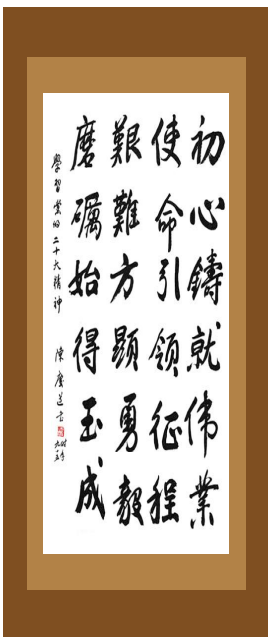 初心鑄就伟業
使命引领征程
艱難方顯勇毅
磨礪始得玉成
學習黨的二十大精神
陳慶道書
時年九五